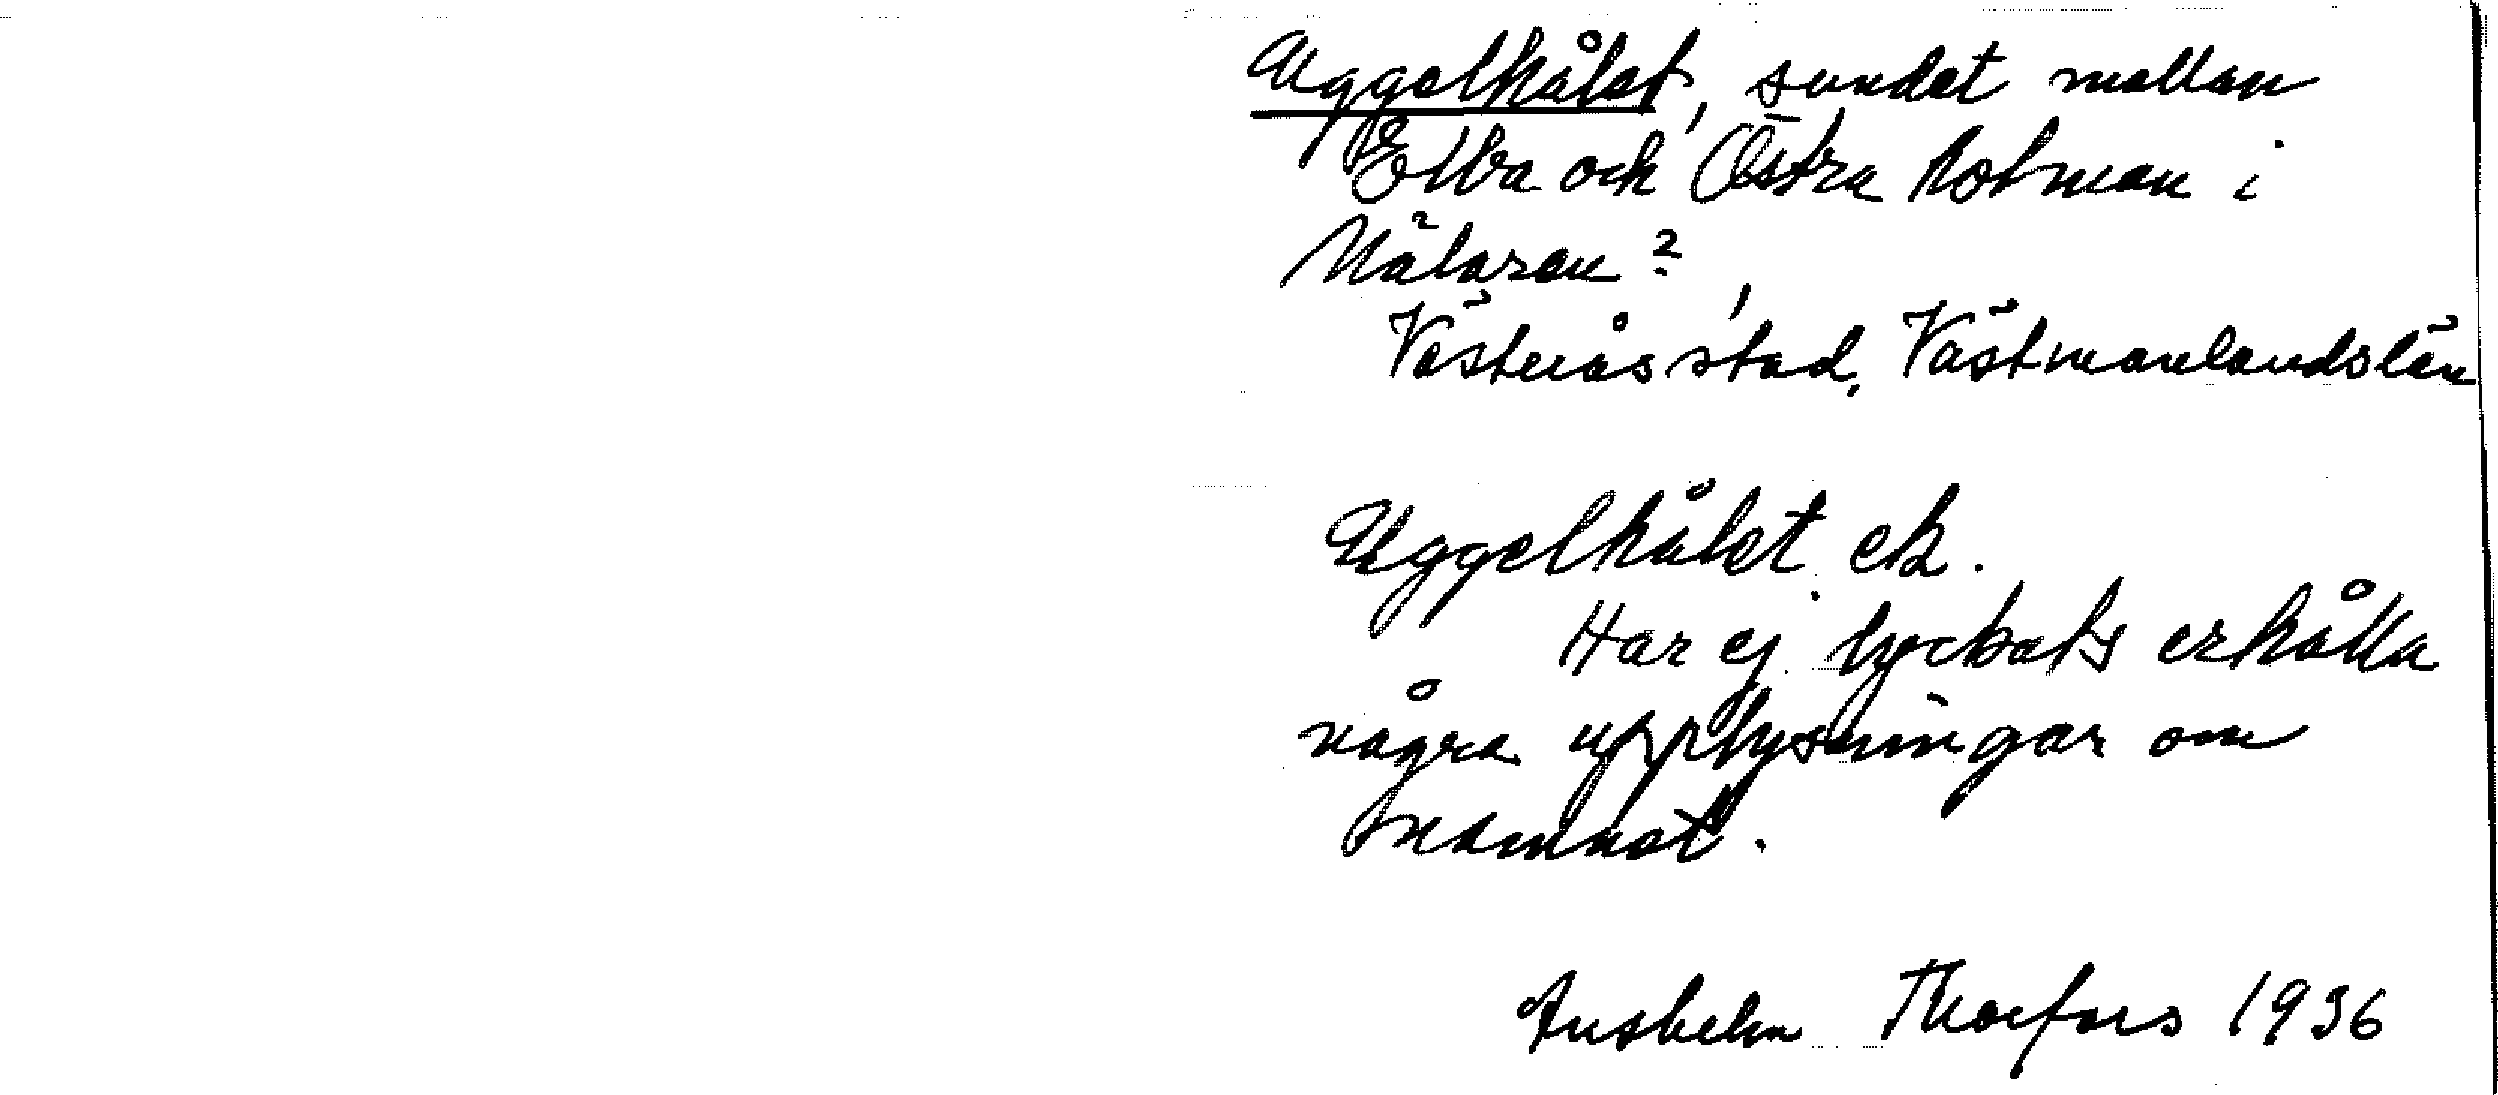 Uggelhålet, sundet mellan
Elba och Östra Holmen i
Mälaren?,
Västerås stad, Västmanlands län
Uggelhålet ek.
Har ej lyckats erhålla
några upplysningar om
namnet.
Anshelm Thorfors 1936